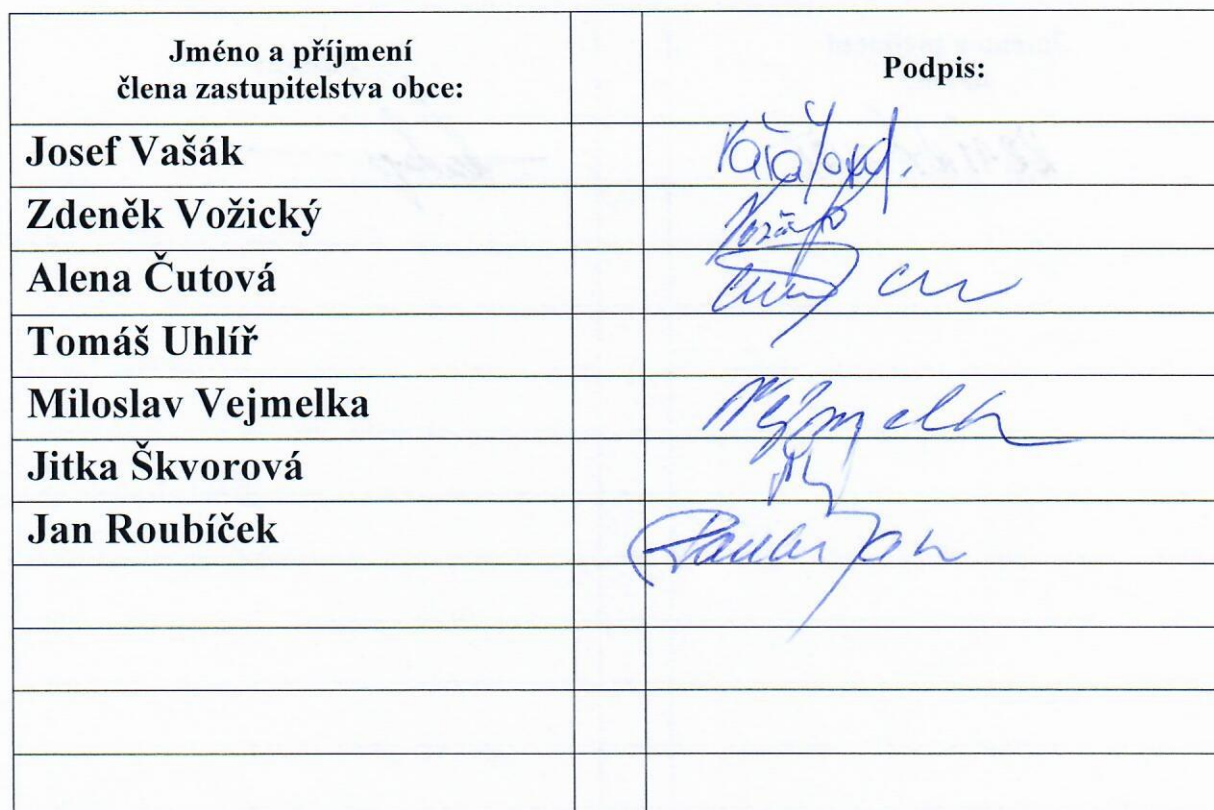 Jméno a příjmení
člena zastupitelstva obce:
Podpis:
Josef Vašák
Zdeněk Vožický
Alena Čutová
Tomáš Uhlíř
Miloslav Vejmelka
Vejmelka
Jitka Škvorová
Jan Roubíček